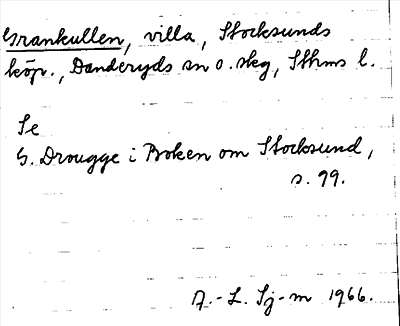 Grankullen, villa, Stocksunds
köp., Danderyds sn o. skg, Sthms l.
Se
G. Drougge i Boken om Stocksund,
s. 99.
A.-L. Sj-m 1966.